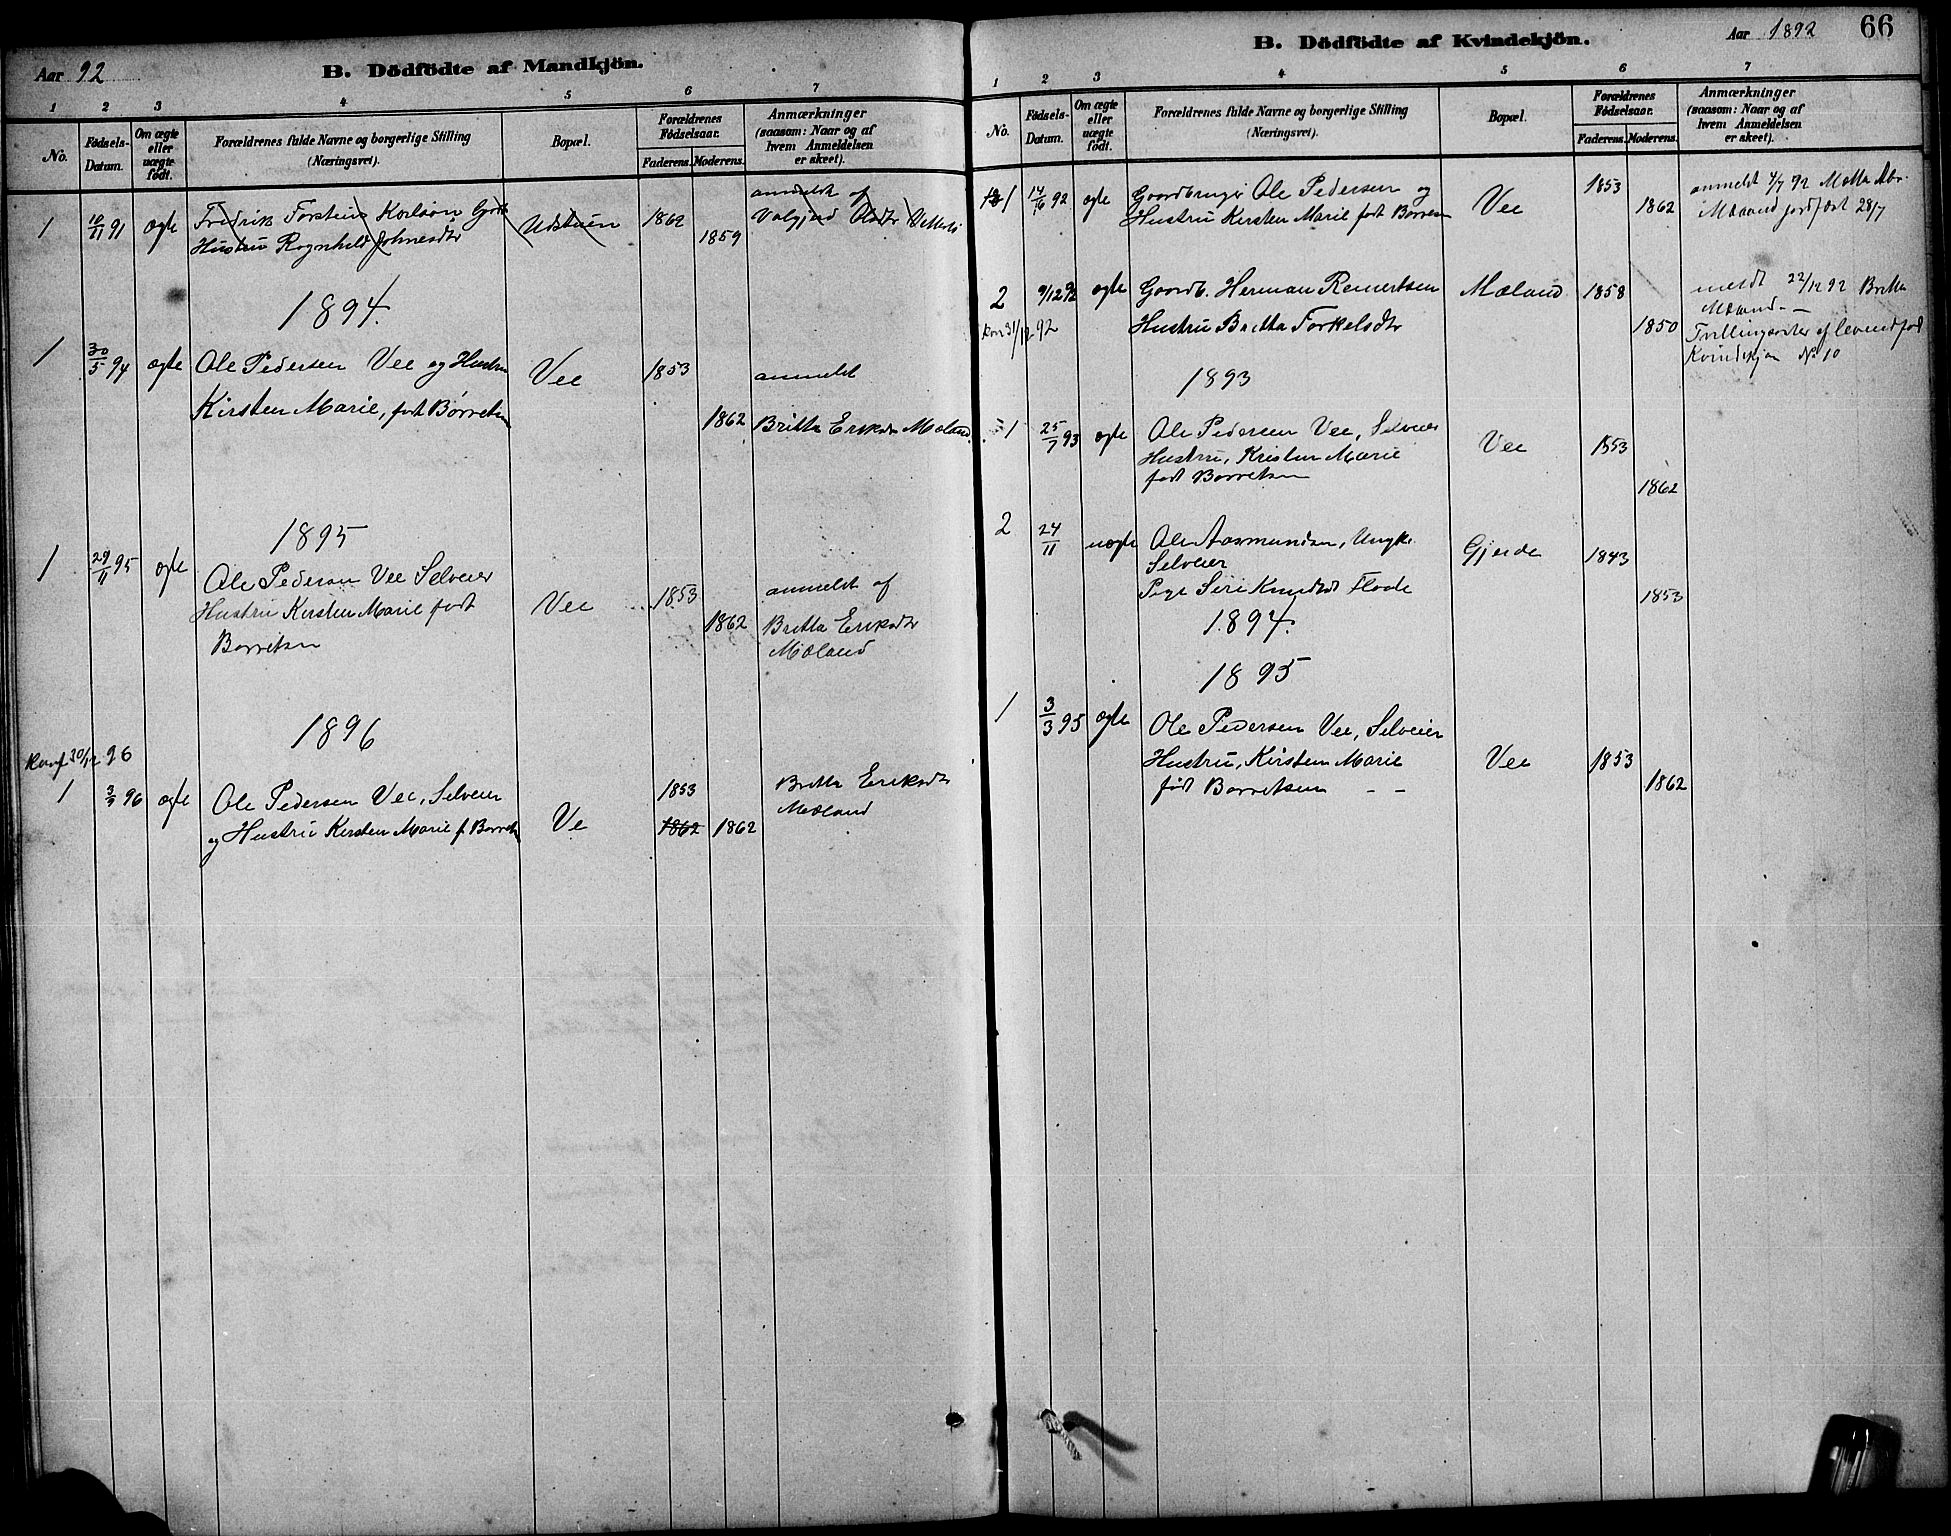 Aar 92
B. Dödfödte af Mandkjön.
1 2 3 4 5 6 7
No.
Fødsels-
Datum.
Om ægte
eller
uægte
født.
Forældrenes fulde Navne og borgerlige Stilling
(Næringsvei).
Bopæl.
Forældrenes
Fødselsaar.
Faderens. Moderens.
Anmærkninger
(saasom: Naar og af
hvem Anmeldelsen
er skeet).
1 10/11 91 ægte Fredrik Torsteins Karlsøn 1862 anmeldt af
Hustru Ragnhild Johnesdtr Udstuen 1859 Valgjerd Olsdtr
1894.
1 30/5 94 ægte Ole Pedersen Vee og Hustru Vee 1853 anmeldt
Kirsten Marie, født Børretsen 1862 Britta Eriksdtr Mæland.
1895
1 29/11 95 ægte Ole Pedersen Vee Selveier
Hustru Kirsten Marie født Vee 1853 anmeldt af
Borretsen 1862 Britta Eriksdtr
Mæland
1896
Konf 30/12 96
1 3/3 96 ægte Ole Pedersen Vee, Selveier 1853 Britta Eriksdtr
og Hustru Kirsten Marie f. Borrets Ve 1862 1862 Mæland
B. Dödfödte af Kvindekjön.
Aar 1892 66
1 2 3 4 5 6 7
No.
Fødsels-
Datum.
Om ægte
eller
uægte
født.
Forældrenes fulde Navne og borgerlige Stilling
(Næringsvei).
Bopæl.
Forældrenes
Fødselsaar.
Faderens. Moderens.
Anmærkninger
(saasom: Naar og af
hvem Anmeldelsen
er skeet).
1 14/6 92 ægte Gaardbruger Ole Pedersen og Vee 1853 anmeldt 4/7 92
Hustru Kirsten Marie født Borretsen 1862 Mæland jordfæst 28/7
2 9/12 92 ægte Gaardb. Herman Remertsen Mæland 1858 meldt 22/12 92 Britta
Konf 31/12 92 Hustru Britta Torkelsdtr 1850 Mæland
Trillingsøster af levendefød
Kvindekjøn No 10
1893
1 25/7 93 ægte Ole Pedersen Vee, Selveier Vee 1853
Hustru, Kristen Marie
født Borretsen 1862
2 24/11 uægte Ole Aasmundsen, Ungk. Gjerde 1843
Selveier
Pige Siri Knudsdt Flade 1853
1894.
1895
1 3/3 95 ægte Ole Pedersen Vee, Selveier
Hustru, Kirsten Marie Vee 1853
født Borretsen 1862